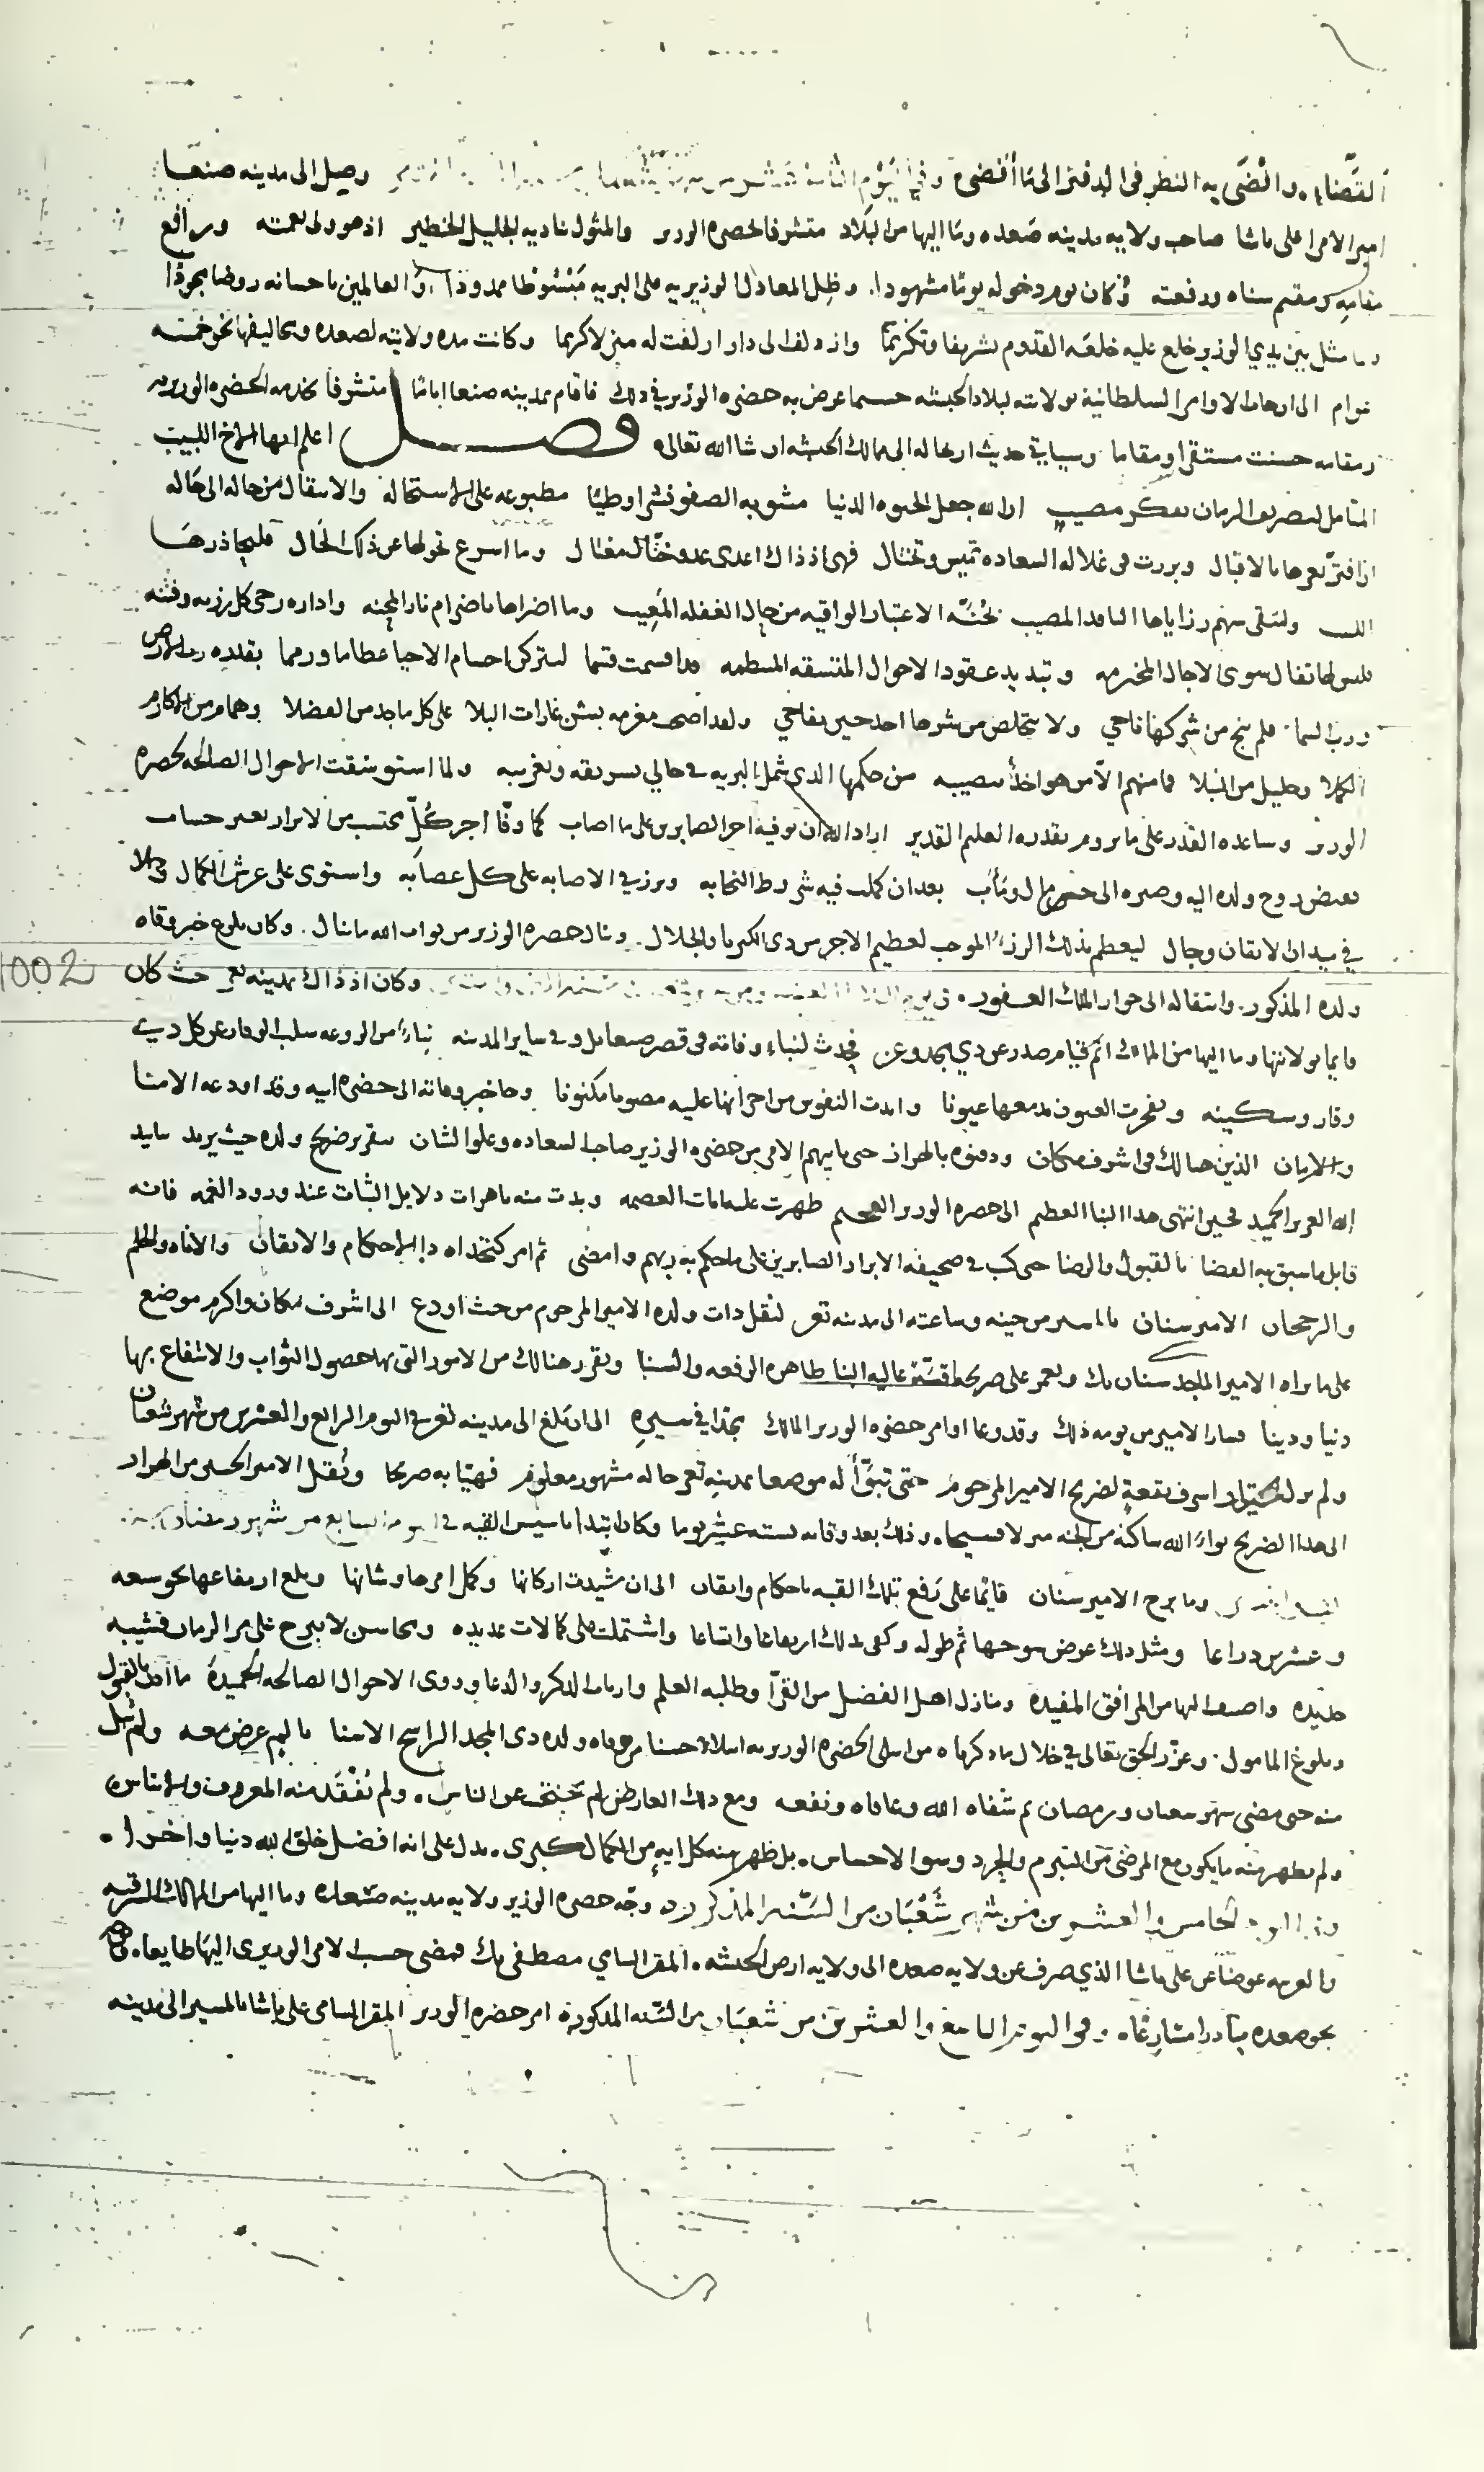 القضاء، وافضى به النظر في الدفتر الى ما افضى وفي اليوم الثامن عشر من وصل الى مدينه صنعا
امير الامرا على باشا صاحب ولايه مدينه صعده وما اليها من البلاد متشرفا بحضره الوزير والمثول بناديه الجليل الخطير اذ هو ولى نعمته ورافع
مقامه ومقيم سناه ورفعته وكان يوم دخوله يومًا مشهودا. وظل المعادل الوزيريه على البريه مبسوطا ممدودا والعالمين باحسانه روضا مجودًا
وما مثل بين يدي الوزير خلع عليه خلعه القدوم تشريفا وتكريمًا وازدلف الى دار ازلفت له منزلا كريما وكانت مده ولايته لصعده ومخاليفها نحو خمسه
عوام الى ارجاء الاوامر السلطانية بولايته لبلاد الحبشه حسبما عرض به حضره الوزير في ذلك فاقام بمدينه صنعا اياما متشرفا بخدمه الحضره الوزيريه
ومقامه حسنت مستقرا ومقاما وسياتي حديث ارتحاله الى ممالك الحبشه ان شا الله تعالى فصل اعلم ايها الاخ اللبيب
المتامل لتصريف الزمان بفكر مصيب ان الله جعل الحيوه الدنيا مشوبه الصفو نشرا وطيًا مطبوعه على الاستحاله والانتقال من حاله الى حاله
ان افترّ ثغرها بالاقبال وبرزت في غلاله السعاده تميس وتختال فهي اذ ذاك اعدى عدو ختّال مغتال وما اسرع تحولها عن ذلك الحال فليحاذرها
اللبيب وليتقى سهم رزاياها النافذ المصيب بجُنّه الاعتبار الواقيه من حال الغفله المعيب وما اضراها باضرام نار المحنه واداره رحى كل رزيه وفتنه
فليس لها تفال سوى الاجال المخترمه وتبديد عقود الاحوال المتسقه المنتظمه قد اقسمت قسما لتتركن اجسام الاحيا عظاما ورمما بقدره رب الارض
ورب السما فلم ينج من شركها ناجي ولا يتخلص من شرها احد حين يفاجي ولقد اضحى مغرمه بشن غارات البلا على كل ماجد من الفضلا وهمام من الاكارم
الكملا وجليل من النبلا فما منهم الّا من هو اخذ بنصيبه من حكمها الذي شمل البريه في حالي تشريقه وتغريبه ولما استوسقت الاحوال الصالحه لحضره
الوزير وساعده القدر على ما يروم بقدره العليم القدير اراد الله ان يوفيه اجر الصابرين على ما اصاب كما وفّا اجر كلّ محتسب من الابرار بغير حساب
فقبض روح ولده اليه وصيره الى حضره ومآب بعد ان كملت فيه شروط النجابه وبرز في الاصابه على كل عصابه واستوى على عرش الكمال وجلا
في ميدان الاتقان وجال ليعظم بذلك الرزء الموجب لعظيم الاجر من ذى الكبريا والجلال. ونال حضره الوزير من ثواب الله ما نال. وكان بلوغ خبر وفاه
1002
ولده المذكور. وانتقاله الى جوار الملك الغفور. وكان اذ ذاك بمدينه تعز حيث كان
قايما بولايتها وما اليها من الممالك اتم قيام صدر عن ذي مجد وعن فحدث لنباء وفاته في قصر صنعا بل وفي ساير المدينه نباء من الروعه سلب الوقار عن كل ذي
وقار وسكينه وتفجرت العيون بدمعها عيونا وابدت النفوس من احزانها عليه مصونا مكنونا وجا خبر وفاته الى حضره ابيه وقد اودعه الامنا
والاعيان الذين هنالك في اشرف مكان ودفنوه بالجراز حتى ياتيهم الامر من حضره الوزير صاحب السعاده وعلو الشان بتقرير ضريح ولده حيث يريد بتاييد
الله العزيز الحميد فحين انتهى هذا النبا العظيم الى حضره الوزير الفخيم ظهرت علامات العصمه وبدت منه باهرات دلايل الثبات عند ورود الغمه فانه
قابل ما سبق به القضا بالقبول والرضا حتى كتب في صحيفه الابرار الصابرين على ما حكم به ربهم وامضى ثم امر كتخداه ذا الاحكام والاتقان والاناه والحلم
والرجحان الامير سنان بالمسير من حينه وساعته الى مدينه تعز لنقل ذات ولده الامير المرحوم من حيث اودع الى اشرف مكان واكرم موضع
على ما يراه الامير الماجد سنان بك ويعمر على ضريحه قبّه عاليه البنا طاهره الرفعه والسنا ويقرر هنالك من الامور التي بها حصول الثواب والانتفاع بها
دنيا ودينا فسار الامير من يومه ذلك وقد وعا اوامر حضره الوزير المالك مجدًا في سيره الى ان بلغ الى مدينه تعز في اليوم الرابع والعشرين من شهر شعبان
ولم يزل يختار اشرف بقعه لضريح الامير المرحوم حتى تبوّأ له موضعا بمدينه تعز حاله مشهور معلوم فهيّا به ضريحا ونُقل الامير الحسن من الجراز
الى هذا الضريح بواء الله ساكنه من الجنه منزلا فسيحا. وذلك بعد وفاته بسته عشر يوما وكان ابتدا تاسيس القبه في اليوم السابع من شهر رمضان
وما برح الامير سنان قايمًا على رفع تلك القبه باحكام واتقان الى ان شيدت اركانها وكمل امرها وشانها وبلغ ارتفاعها نحو سبعه
وعشرين ذراعا ومثل ذلك عرض سوحها ثم طوله وكفى بذلك ارتفاعا واتساعا واشتملت على كمالات عديده ومحاسن لا يبرح على مر الزمان قشيبه
جديده واضيف اليها من المرافق المفيده ومنازل اهل الفضل من القرآ وطلبه العلم وارباب الذكر والدعا وذوى الاحوال الصالحه الحميدة ما اذن بالقبول
وبلوغ المامول. وعزّز الحق تعالى في خلال ما ذكرناه من ابتلى الحضره الوزيريه ابتلاءً حسنا مع وفاه ولده ذى المجد الراسخ الاسنا بالم عرض معه ولم يبل
منه حتى مضى شهر شعبان ورمضان ثم شفاه الله وعافاه ونفعه ومع ذلك العارض لم يحتجب عن الناس. ولم تُفقد منه المعروف والايناس
ولم يظهر منه ما يكون مع المرضى من التبرم والحرد وسوا الاحساس. بل ظهر منه كل ايه من الكمال كبرى. يدل على انه افضل خلق الله دنيا واخرا.
وفي اليوم الخامس والعشرين من شهر شَعْبَان من السّنه المذكوره وجّه حضره الوزير ولايه مدينه صعده وما اليها من الممالك الشرقيه
والغربيه عوضا عن على باشا الذي صرف عن ولايه صعده الى ولايه ارض الحبشه. المقر السامي مصطفى بك فمضى حسب الامر الوزيرى اليها طايعا.
نحو صعده مبادرا مسارعًا. وفى اليوم التاسع والعشرين من شعبان من السّنه المذكورة امر حضره الوزير المقر السامى على باشا بالمسير الى مدينه